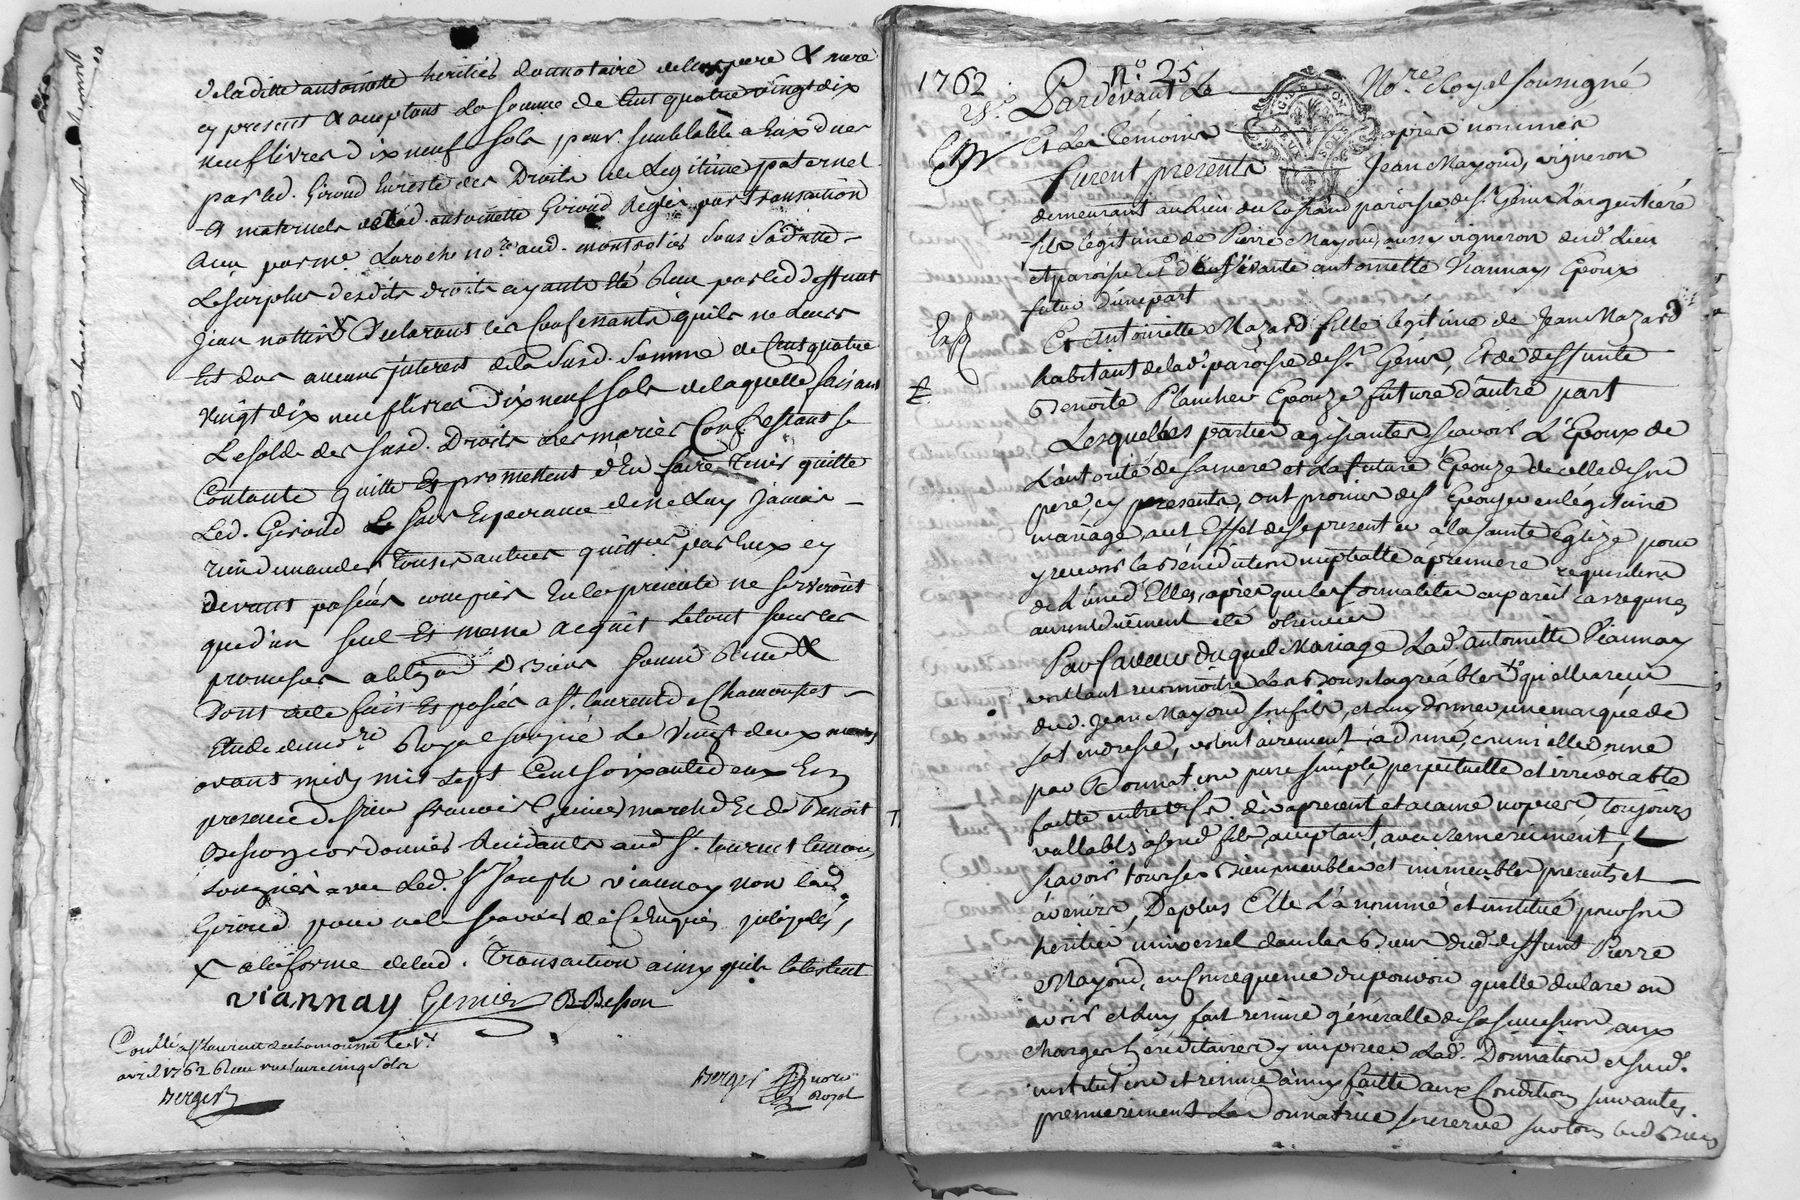 deladitte antoinette heritiés dunnotaire deleur pere & mere
cy present & acceptans La somme de Cent quatre vingt dix
neuf livres dix neuf sols pour semblable a Eux dues
par led. Giroud En reste des Droits de Legitime paternel
& maternels de lad. antoinette Giroud Reglés par transaction
recu par me. Laroche nore. aud. montrotiés sous sa datte
Le surplus desdits droits ayant Eté Recu par led deffunt
Jean
declarant les Confessants qu'ils ne leurs
Est dus aucuns interest dela susd. somme de Cent quatre
vingt dix neuf livres dix neuf sols de laquelle faisant
Le solde des susd. Droits les mariés Confessants se
Contente quitte Et promettent d'En faire tenir quitte
Led. Giroud sans Esperance de ne luy jamais
rien demander tous autres quittances par Eux cy
devant passées comprises En la presente ne serviront
que d'un seul Et meme acquit letout sous les
promesses obligaon de biens soumis Renon &
Dont acte fait Et passés a St. laurent de Chamousset
Etude dunore Royal soussigné Le vingt deux mars
avant midy mil sept Cent soixante deux En
presence de sieur francois Genier marchd Et de Benoit
Besson cordonnier Residants aud St. laurent temoins
soussignés avec Led. Sr. Joseph viannay non lad.
Giroud pour ne le scavoir de ce Enquis
x a la forme delad. Transaction ainsy quils l'attestent
viannay Genier B Besson
Conllé a St laurent de chamousset le
avril 1762 Recu
cinq Sols
Berger
Berger nore Royal
n.o 25
1762
Pardevant Le No.re Royal soussigné
Et Les temoins après nommés
furent presents Jean Mayoud, vigneron
demeurant au Lieu du paroisse de St. Genis L'argentiere
fils legitime de Pierre Mayoud aussy vigneron dud. Lieu
et paroisse Et d'antoinette Viannay Epoux
futur d'une part
Et Antoinette Mazard fille legitime de Jean Mazard
habitant de lad. paroisse de St. Genis, Et de deffunte
Benoite Planchet Epouze future d'autre part
Lesquelles parties agissantes scavoir L'Epoux de
L'autorité de sa mere et La future Epouze de celle de son
pere, cy presents, ont promis de s'Epouser en légitime
mariage aux Effet de se presenter à la sainte Eglize pour
y recevoir la bénédiction nuptialle a première requisition
de L'une d'Elles, après que les formalités en pareil cas requises
auront dûement été observées
En faveur du quel Mariage Lad. antoinette Viannay
voullant reconnoitre Les bons et agréables qu'elle a reçu
dud. Jean Mayoud son fils, et luy donner une marque de
sa tendresse, volontairement, a donné, comme elle donne
par Donnation pure simple, perpetuelle et irrévocable
faitte entre vifs dès apresent et a jamais toujours
vallable, a sond. fils acceptant, avec remerciement,
scavoir tous ses biens meubles et immeubles presents et
à venirs, De plus Elle L'a nommé et institué pour son
heritier universel dans les biens dud. deffunt Pierre
Mayoud, en Consequence du pouvoir quelle declare en
avoir et luy fait remise générale de sa succession aux
charges héréditaires y imposées Lad. Donnation et susd.
institution et remise ainsy faitte aux Conditions suivantes.
premierement La Donnatrice se reserve sur tous lesd biens